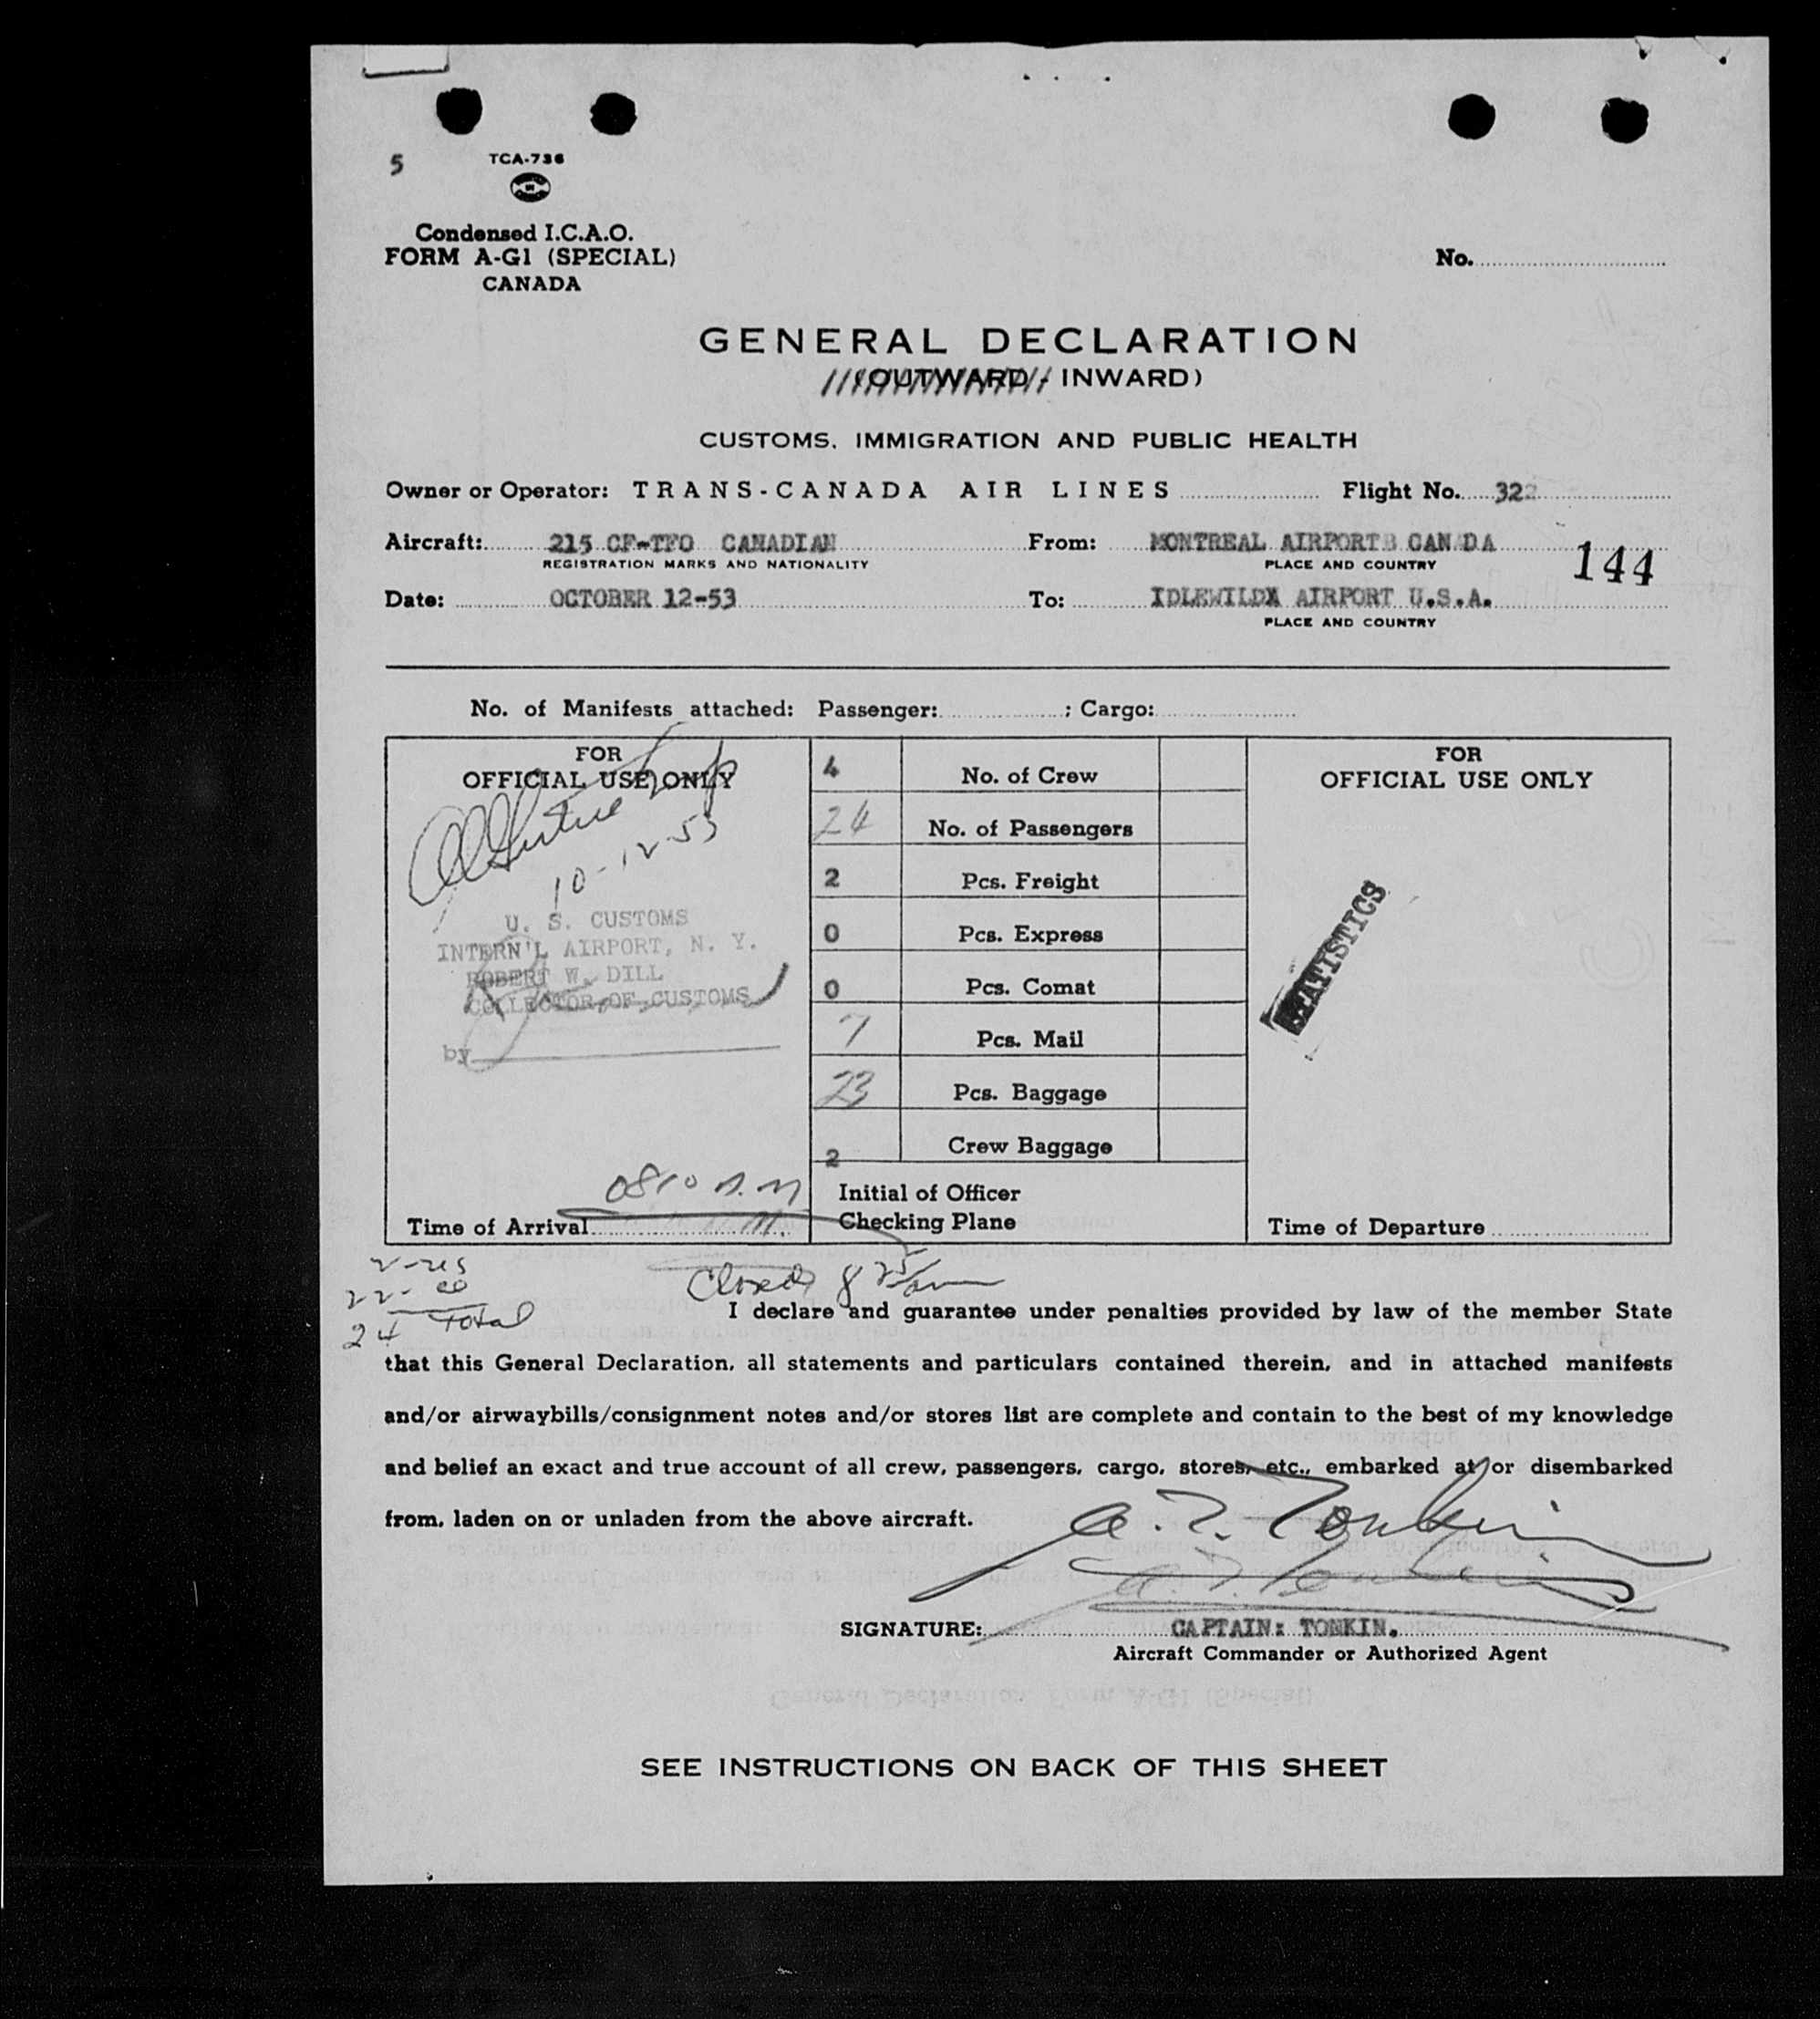 5
TCA-736
Condensed I.C.A.O.
FORM A-G1 (SPECIAL)
CANADA
No.
GENERAL DECLARATION
(OUTWARD - INWARD)
CUSTOMS, IMMIGRATION AND PUBLIC HEALTH
Owner or Operator: TRANS-CANADA AIR LINES Flight No. 322
Aircraft: 215 CF-TFO CANADIAN From: MONTREAL AIRPORT CANADA
REGISTRATION MARKS AND NATIONALITY PLACE AND COUNTRY
144
Date: OCTOBER 12-53 To: IDLEWILDX AIRPORT U.S.A.
PLACE AND COUNTRY
No. of Manifests attached: Passenger: ; Cargo:
FOR
OFFICIAL USE ONLY
10-12-53
U. S. CUSTOMS
INTERN'L AIRPORT, N. Y.
ROBERT W. DILL
COLLECTOR OF CUSTOMS
by
0810 A.M
Time of Arrival
4 No. of Crew
24 No. of Passengers
2 Pcs. Freight
0 Pcs. Express
0 Pcs. Comat
7 Pcs. Mail
23 Pcs. Baggage
2 Crew Baggage
Initial of Officer
Checking Plane
FOR
OFFICIAL USE ONLY
STATISTICS
Time of Departure
2-us
22-
24 Total
Closed 8 25 am
I declare and guarantee under penalties provided by law of the member State
that this General Declaration, all statements and particulars contained therein, and in attached manifests
and/or airwaybills/consignment notes and/or stores list are complete and contain to the best of my knowledge
and belief an exact and true account of all crew, passengers, cargo, stores, etc., embarked at or disembarked
from, laden on or unladen from the above aircraft.
SIGNATURE: CAPTAIN: TONKIN.
Aircraft Commander or Authorized Agent
SEE INSTRUCTIONS ON BACK OF THIS SHEET